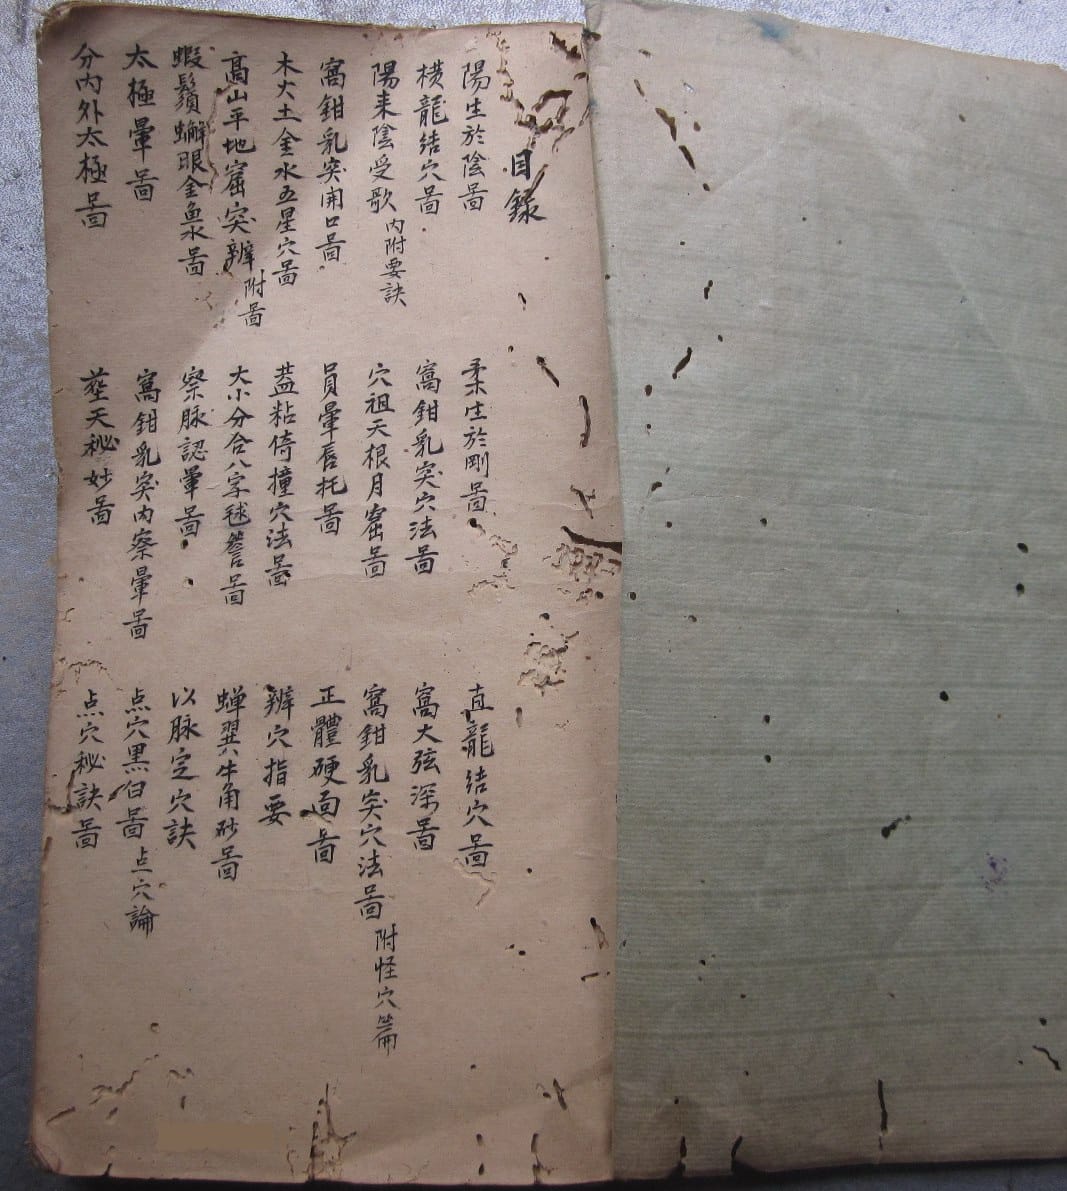 目錄
陽生於陰圖 柔生於剛圖 直龍結穴圖
橫龍結穴圖 窩鉗乳突穴法圖 窩大弦深圖
陽來陰受歌 內附要訣 穴祖天根月窟圖 窩鉗乳突穴法圖 附怪穴篇
窩鉗乳突開口圖 員暈唇托圖 正體硬面圖
木火土金水五星穴圖 葢粘倚撞穴法圖 辨穴指要
高山平地窟突辨 附圖 大小分合八字毬簷圖 蝉翼牛角砂圖
蝦鬚蠏眼金魚水圖 察脉認暈圖 以脉定穴訣
太極暈圖 窩鉗乳突內察暈圖 点穴黑白圖 点穴論
分內外太極圖 天秘妙圖 点穴秘訣圖